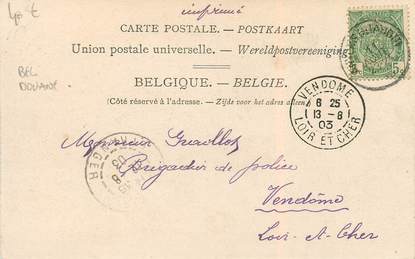 40 €
imprimé
CARTE POSTALE. — POSTKAART
Union postale universelle. — Wereldpostvereeniging
BEL
DOUANE
BELGIQUE. — BELGIE.
(Côté réservé à l'adresse. — Zijde voor het adres alleen
5
VENDOME
6 25
13 - 8
03
LOIR ET CHER
Monsieur
Brigadier de police
Vendôme
Loir-et-Cher
03